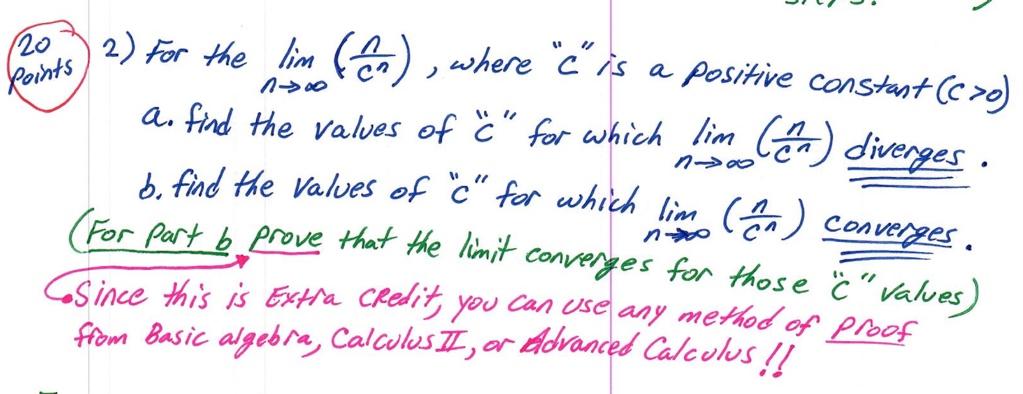 20 Points
2) For the lim n→∞ (n/cⁿ), where "c" is a positive constant (c>0)
a. find the values of "c" for which lim n→∞ (n/cⁿ) diverges.
b. find the values of "c" for which lim n→∞ (n/cⁿ) converges.
(For Part b prove that the limit converges for those "c" values)
Since this is Extra Credit, you can use any method of proof
from Basic algebra, Calculus II, or Advanced Calculus!!